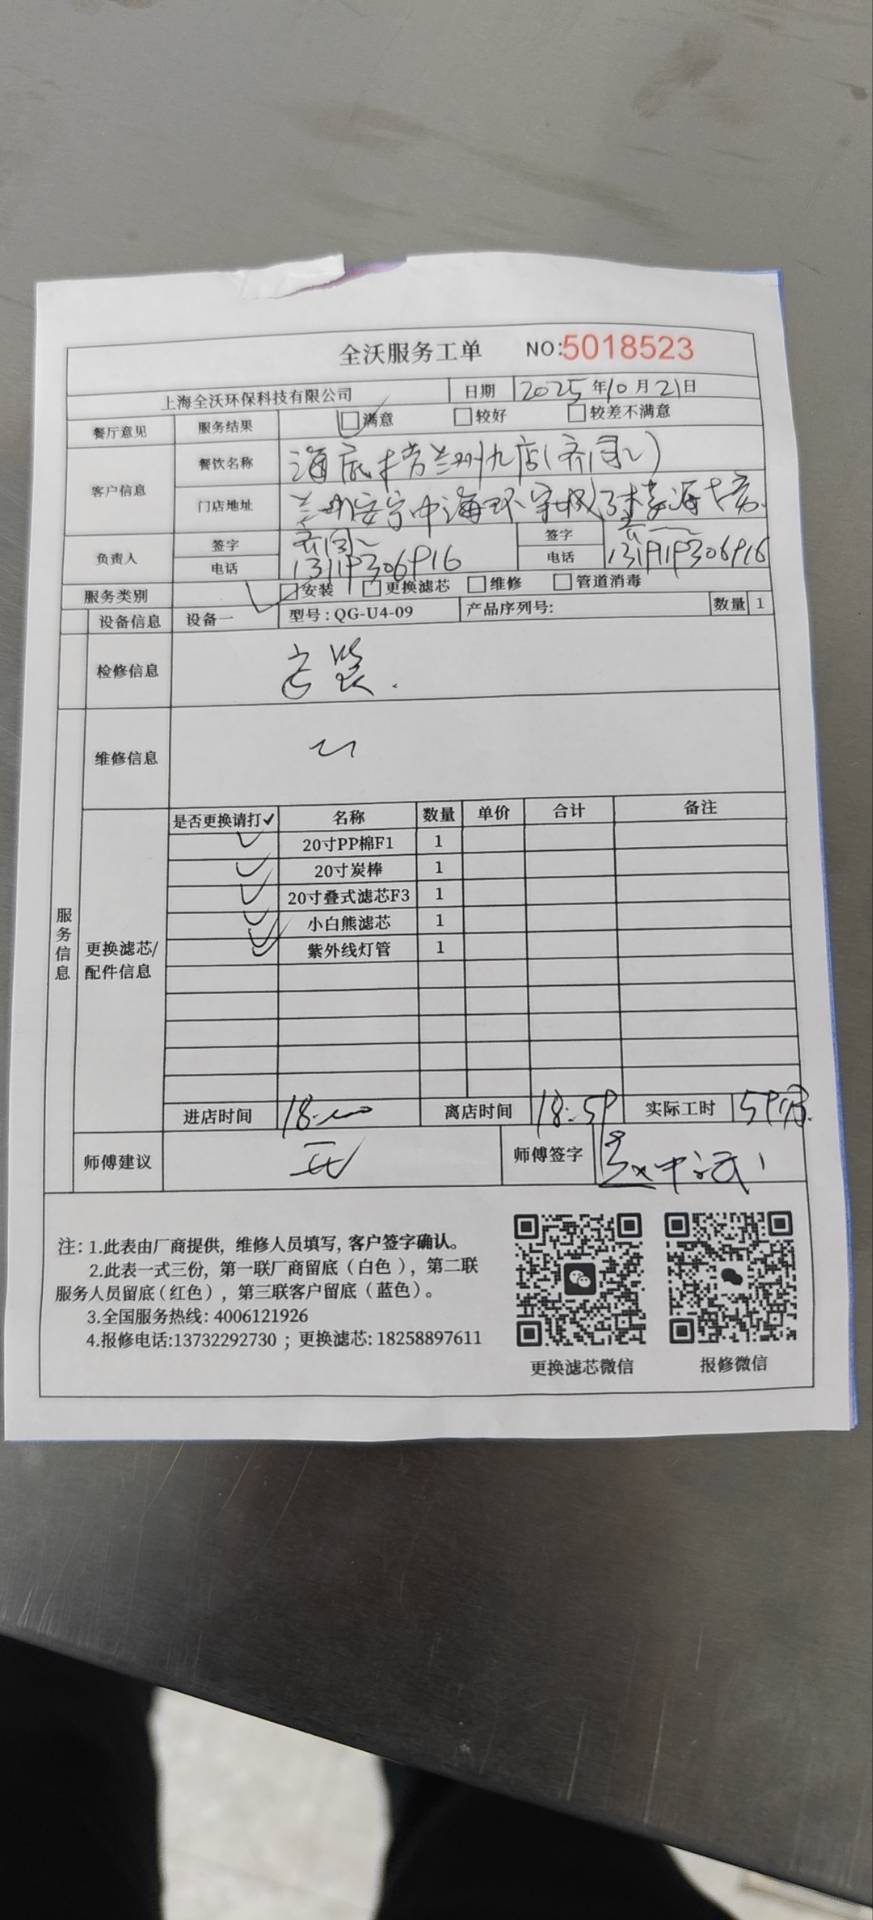 全沃服务工单 NO:5018523
上海全沃环保科技有限公司 日期 2025年10月21日
餐厅意见 服务结果 满意 较好 较差不满意
客户信息 餐饮名称 海底捞兰州九店
门店地址 兰州安宁中海环宇城 楼海底捞
负责人 签字 签字
电话 电话
服务类别 安装 更换滤芯 维修 管道消毒
设备信息 设备一 型号:QG-U4-09 产品序列号: 数量 1
服务信息
检修信息 安装.
维修信息
更换滤芯/配件信息
是否更换请打✓ 名称 数量 单价 合计 备注
✓ 20寸PP棉F1 1
✓ 20寸炭棒 1
✓ 20寸叠式滤芯F3 1
✓ 小白熊滤芯 1
✓ 紫外线灯管 1
进店时间 18:00 离店时间 18:59 实际工时 59分
师傅建议 无 师傅签字
注:1.此表由厂商提供, 维修人员填写, 客户签字确认。
2.此表一式三份, 第一联厂商留底(白色), 第二联
服务人员留底(红色), 第三联客户留底(蓝色)。
3.全国服务热线: 4006121926
4.报修电话:13732292730 ; 更换滤芯: 18258897611
更换滤芯微信 报修微信